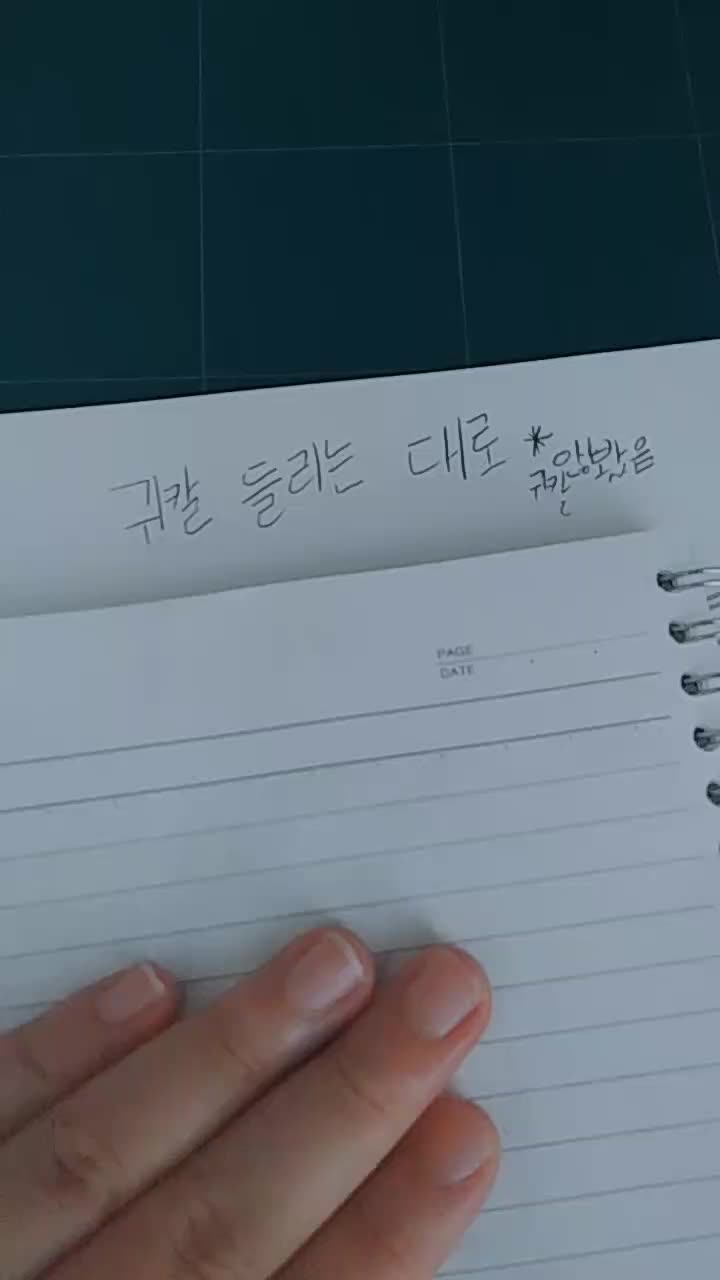 귀칼 들리는 대로 *
귀칼 안봤음
PAGE
DATE